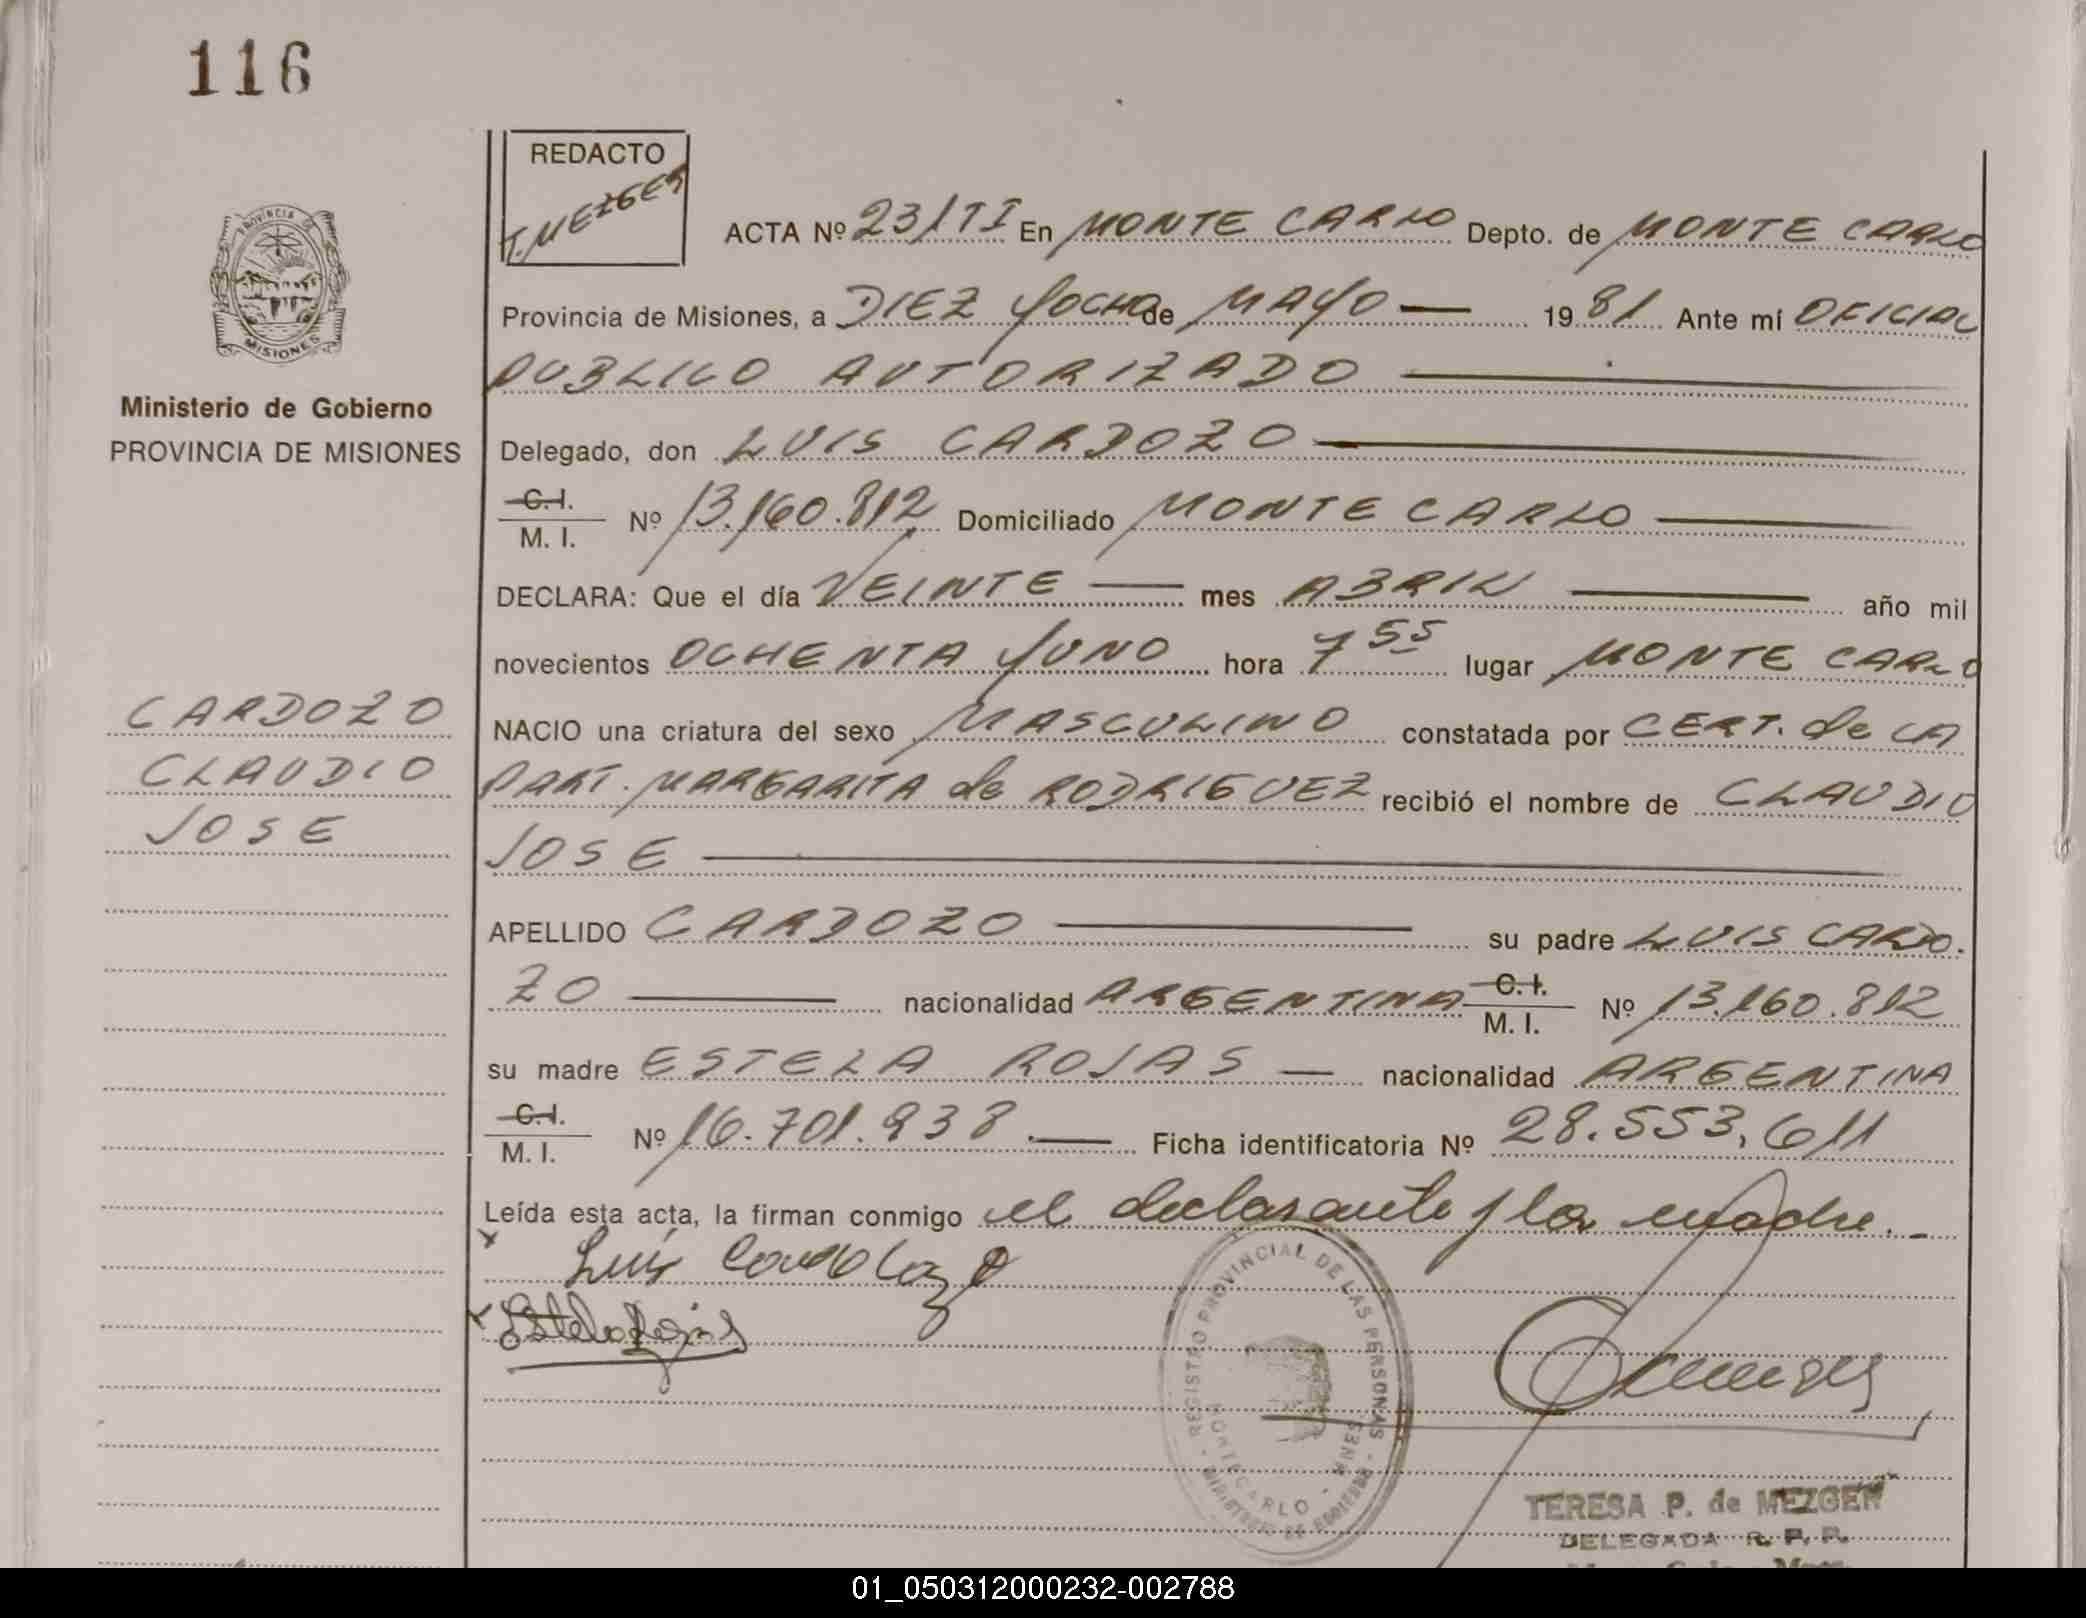 116
REDACTO
T. MEZGER
ACTA Nº 231TI En MONTE CARLO Depto. de MONTE CARLO
Provincia de Misiones, a DIEZ Y OCHO de MAYO 1981 Ante mí OFICIAL
PUBLICO AUTORIZADO
Delegado, don LUIS CARDOZO
C.I. M. I. Nº 13.160.812 Domiciliado MONTE CARLO
DECLARA: Que el día VEINTE mes ABRIL año mil
novecientos OCHENTA Y UNO hora 7 55 lugar MONTE CARLO
NACIO una criatura del sexo MASCULINO constatada por CERT. de LA
PART. MARGARITA de RODRIGUEZ recibió el nombre de CLAUDIO
JOSE
APELLIDO CARDOZO su padre LUIS CARDO.
ZO nacionalidad ARGENTINA C. I. M. I. Nº 13.160.812
su madre ESTELA ROJAS nacionalidad ARGENTINA
C.I. M. I. Nº 16.701.938 Ficha identificatoria Nº 28.553.611
Leída esta acta, la firman conmigo el declarante y la madre.
Luis Cardozo
Estela Rojas
PROVINCIA DE
MISIONES
Ministerio de Gobierno
PROVINCIA DE MISIONES
CARDOZO
CLAUDIO
JOSE
REGISTRO PROVINCIAL DE LAS PERSONAS
MONTECARLO - MNES
MINISTERIO DE GOBIERNO
TERESA P. de MEZGER
DELEGADA R. P. P.
01_050312000232-002788